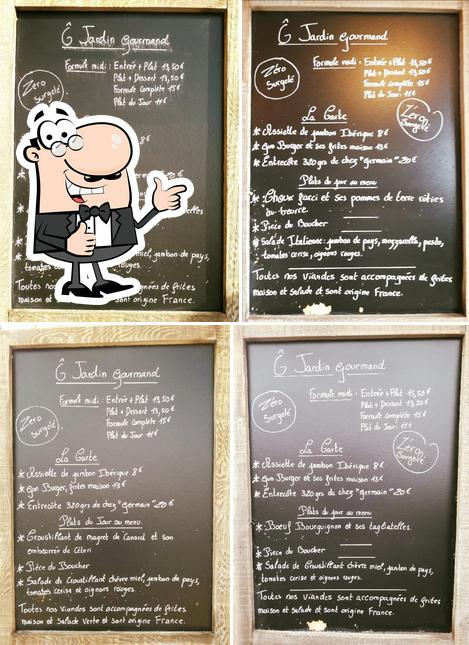 Ô Jardin Gourmand
Formule midi : Entrée + Plat 13,50€
Plat + Dessert 13,50€
Formule complète 15€
Plat du Jour 11€
Zéro
Surgelé
8€
miel, jambon de pays,
tomates rouges.
Toutes nos accompagnées de frites
maison et Salade sont origine France.
Ô Jardin Gourmand
Formule midi : Entrée + Plat 13,50€
Plat + Dessert 13,50€
Formule complète 15€
Plat du Jour 11€
Zéro
Surgelé
Zéro
Surgelé
La Carte
* Assiette de jambon Ibérique 8€
* Burger et ses frites maison 13€
* Entrecôte 320grs de chez "Germain" 20€
Plats du jour au menu
* Choux farci et ses pommes de terre rôties
au beurre
* Pièce du Boucher
* Salade Italienne: jambon de pays, mozzarella, pesto,
tomates cerise, oignons rouges.
Toutes nos Viandes sont accompagnées de frites
maison et Salade et sont origine France.
Ô Jardin Gourmand
Formule midi : Entrée + Plat 13,50€
Plat + Dessert 13,50€
Formule complète 15€
Plat du Jour 11€
Zéro
Surgelé
La Carte
* Assiette de jambon Ibérique 8€
* Burger, frites maison 13€
* Entrecôte 320grs de chez "Germain" 20€
Plats du Jour au menu
* Croustillant de magret de Canard et son
embeurrée de Céleri
* Pièce du Boucher
* Salade de Croustillant chèvre miel, jambon de pays,
tomates cerise et oignons rouges.
Toutes nos Viandes sont accompagnées de frites
maison et Salade verte et sont origine France.
Ô Jardin Gourmand
Formule midi : Entrée + Plat 13,50€
Plat + Dessert 13,50€
Formule complète 15€
Plat du Jour 11€
Zéro
Surgelé
Zéro
Surgelé
La Carte
* Assiette de jambon Ibérique 8€
* Burger et ses frites maison 13€
* Entrecôte 320grs de chez "Germain" 20€
Plats du jour au menu
* Boeuf Bourguignon et ses tagliatelles.
* Pièce du Boucher
* Salade de Croustillant chèvre miel, jambon de pays,
tomates cerise et oignons rouges.
Toutes nos Viandes sont accompagnées de frites
maison et Salade et sont origine France.